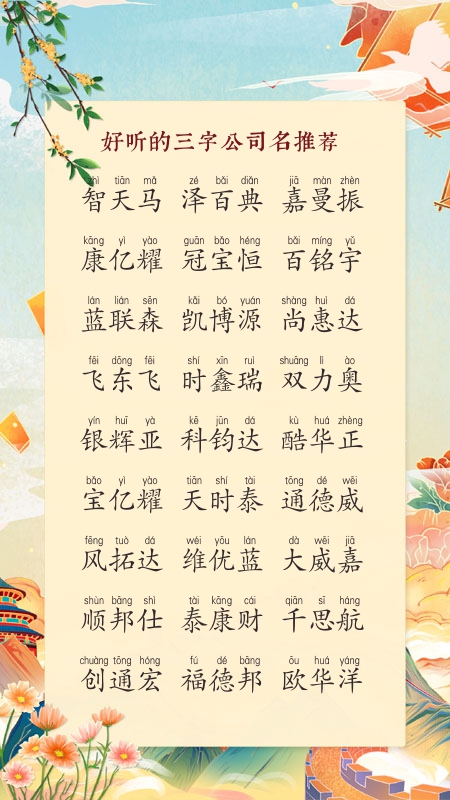 好听的三字公司名推荐
zhì tiān mǎ zé bǎi diǎn jiā màn zhèn
智天马 泽百典 嘉曼振
kāng yì yào guān bǎo héng bǎi míng yǔ
康亿耀 冠宝恒 百铭宇
lán lián sēn kǎi bó yuán shàng huì dá
蓝联森 凯博源 尚惠达
fēi dōng fēi shí xīn ruì shuāng lì ào
飞东飞 时鑫瑞 双力奥
yín huī yà kē jūn dá kù huá zhèng
银辉亚 科钧达 酷华正
bǎo yì yào tiān shí tài tōng dé wēi
宝亿耀 天时泰 通德威
fēng tuò dá wéi yōu lán dà wēi jiā
风拓达 维优蓝 大威嘉
shùn bāng shì tài kāng cái qiān sī háng
顺邦仕 泰康财 千思航
chuàng tōng hóng fú dé bāng ōu huá yáng
创通宏 福德邦 欧华洋